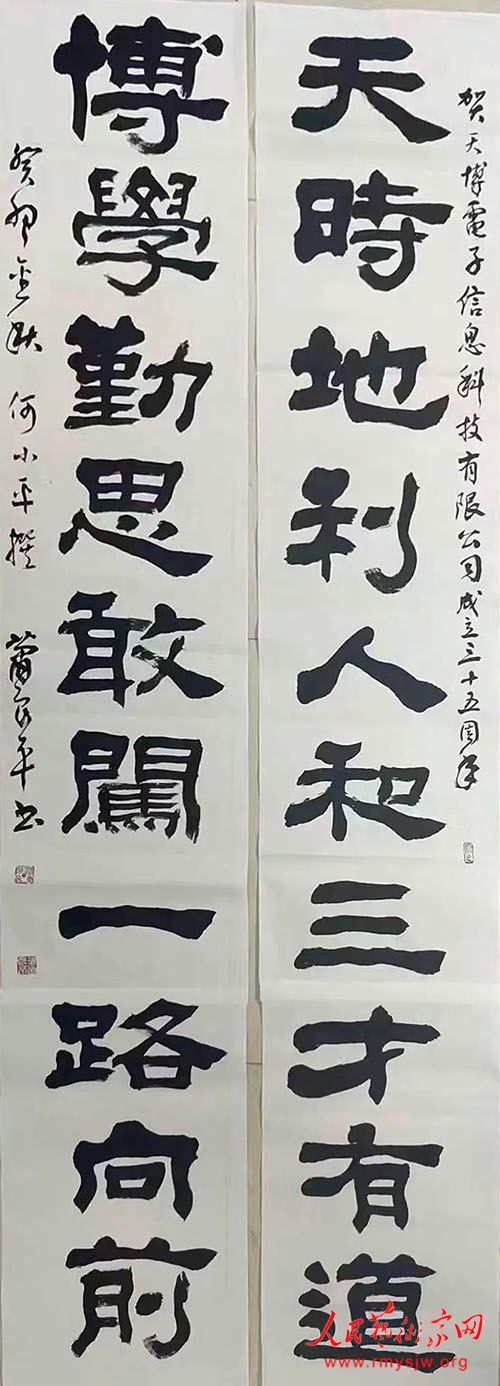 贺天博電子信息科技有限公司成立三十五周年
天時地利人和三才有道
博學勤思敢闖一路向前
癸卯金秋 何小平撰 蕭安平书
人民藝術家网
www.rmysjw.org